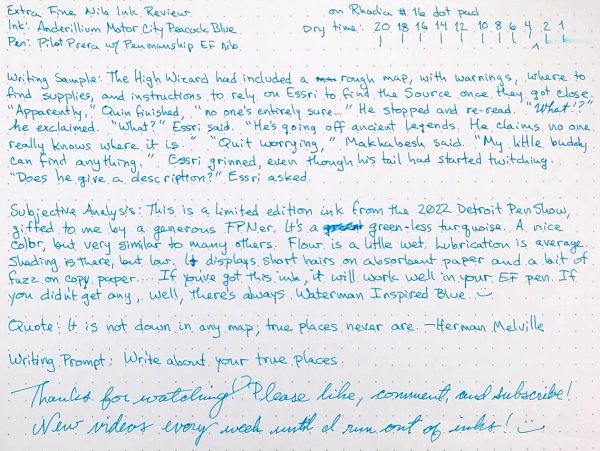 Extra Fine Nib Ink Review
on Rhodia #16 dot pad
Ink: Anderillium Motor City Peacock Blue
Dry time: 20 18 16 14 12 10 8 6 4 2 1
Pen: Pilot Prera w/ Penmanship EF Nib
Writing Sample: The High Wizard had included a rough map, with warnings, where to
find supplies, and instructions to rely on Essri to find the Source once they got close.
"Apparently," Quin finished, "no one's entirely sure..." He stopped and re-read. "What!?"
he exclaimed. "What?" Essri said. "He's going off ancient legends. He claims no one
really knows where it is." "Quit worrying," Makhabesh said. "My little buddy
can find anything." Essri grinned, even though his tail had started twitching.
"Does he give a description?" Essri asked.
Subjective Analysis: This is a limited edition ink from the 2022 Detroit Pen Show,
gifted to me by a generous FPNer. It's a green-less turquoise. A nice
color, but very similar to many others. Flow is a little wet. Lubrication is average.
Shading is there, but low. It displays short hairs on absorbent paper and a bit of
fuzz on copy paper.... If you've got this ink, it will work well in your EF pen. If
you didn't get any, well, there's always Waterman Inspired Blue. :)
Quote: It is not down in any map; true places never are. —Herman Melville
Writing Prompt: Write about your true places.
Thanks for watching♡ Please like, comment, and subscribe!
New videos every week until I run out of inks! :)